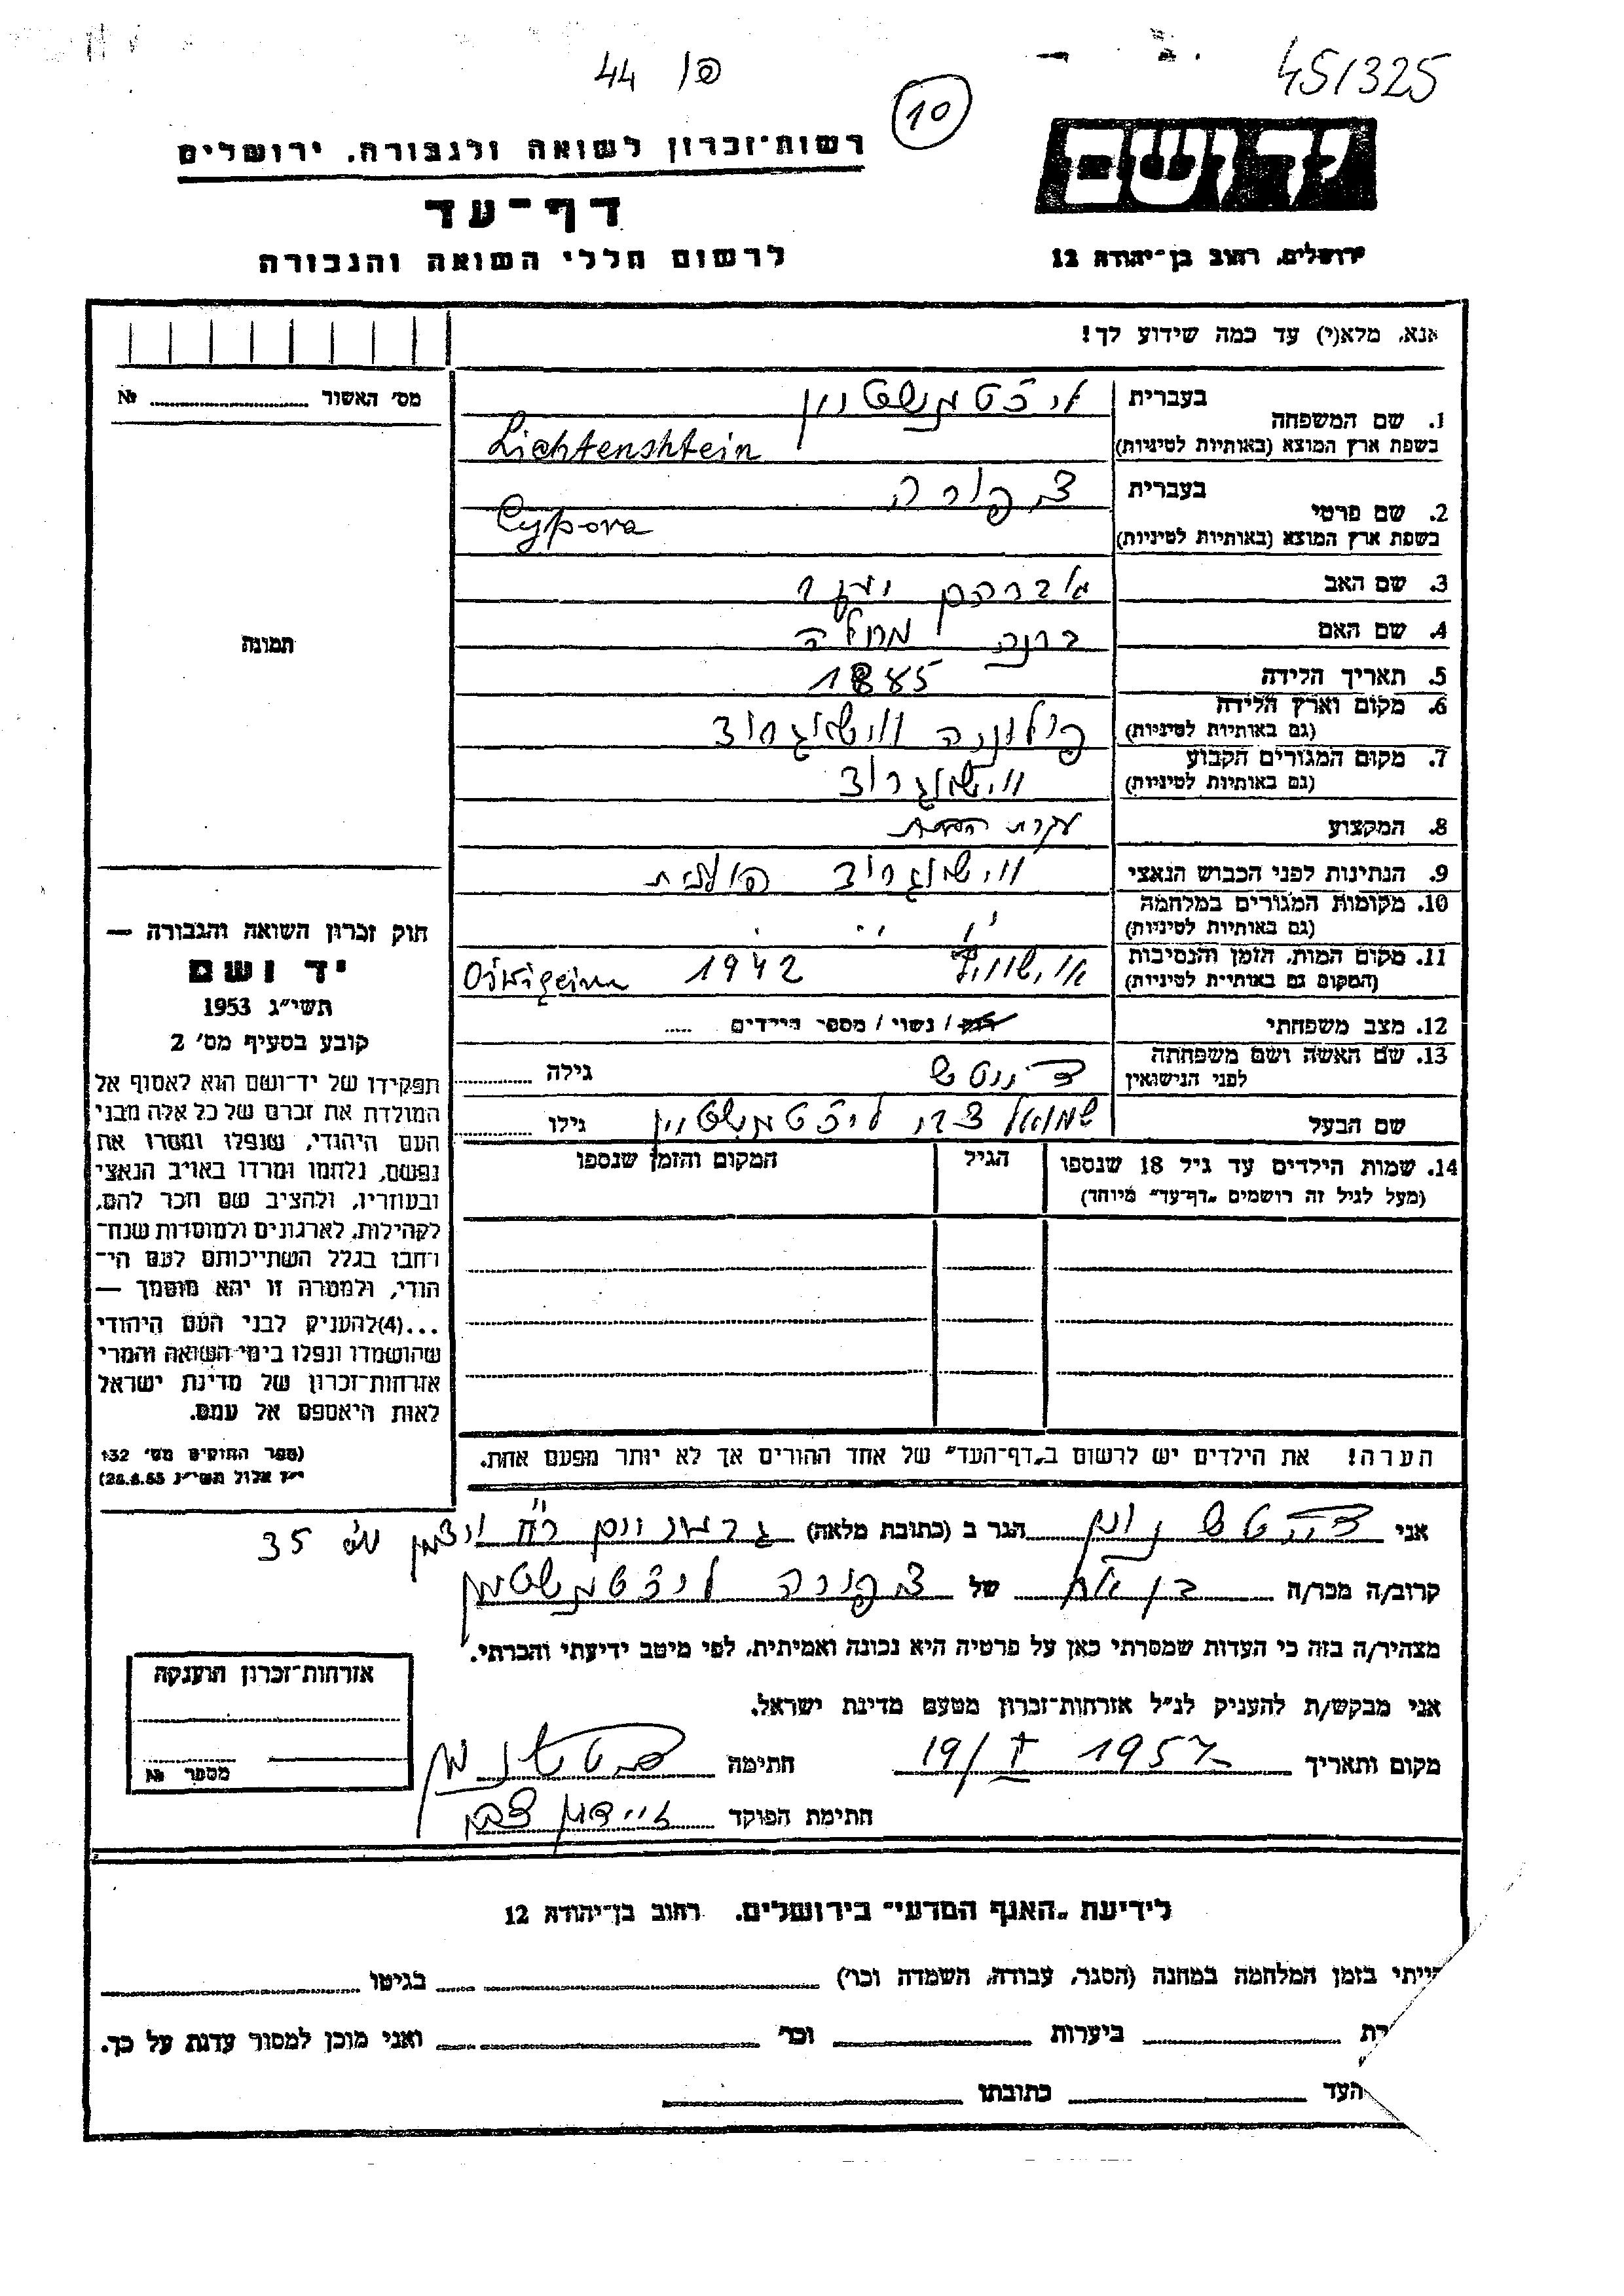 44 פו
10
45/325
רשות־זכרון לשואה ולגבורה, ירושלים
יד ושם
דף־עד
לרשום חללי השואה והגבורה
ירושלים, רחוב בן־יהודה 12
אנא, מלא(י) עד כמה שידוע לך!
מס׳ האשור № 
1. שם המשפחה בעברית ליכטנשטיין
בשפת ארץ המוצא (באותיות לטיניות) Lichtenshtein
2. שם פרטי בעברית צפורה
בשפת ארץ המוצא (באותיות לטיניות) Cypora
3. שם האב אברהם
4. שם האם ברנה
5. תאריך הלידה 1885
6. מקום וארץ הלידה פולוניה ווישאגרוד
(גם באותיות לטיניות)
7. מקום המגורים הקבוע ווישאגרוד
(גם באותיות לטיניות)
8. המקצוע עקרת הבית
9. הנתינות לפני הכבוש הנאצי ווישאגרוד פולנית
10. מקומות המגורים במלחמה
(גם באותיות לטיניות)
11. מקום המות, הזמן והנסיבות אוישוויץ 1942
(המקום גם באותיות לטיניות)
12. מצב משפחתי רווק / נשוי / מספר הילדים
13. שם האשה ושם משפחתה
לפני הנישואין גילה
שם הבעל שמואל צבי ליכטנשטיין גילו
14. שמות הילדים עד גיל 18 שנספו הגיל המקום והזמן שנספו
(מעל לגיל זה רושמים „דף־עד” מיוחד)
הערה! את הילדים יש לרשום ב„דף־העד” של אחד ההורים אך לא יותר מפעם אחת.
תמונה
חוק זכרון השואה והגבורה —
יד ושם
תשי״ג 1953
קובע בסעיף מס׳ 2
תפקידו של יד־ושם הוא לאסוף אל
המולדת את זכרם של כל אלה מבני
העם היהודי, שנפלו ומסרו את
נפשם, נלחמו ומרדו באויב הנאצי
ובעוזריו, ולהציב שם וזכר להם,
לקהילות, לארגונים ולמוסדות שנח־
רבו בגלל השתייכותם לעם הי־
הודי, ולמטרה זו יהא מוסמך —
...(4) להעניק לבני העם היהודי
שהושמדו ונפלו בימי השואה והמרי
אזרחות־זכרון של מדינת ישראל
לאות היאספם אל עמם.
(ספר החוקים מס׳ 132
י״ז אלול תשי״ג 28.8.53)
אני הגר ב (כתובת מלאה) 35
קרוב/ה מכר/ה בן אח של צפורה ליכטנשטיין
מצהיר/ה בזה כי העדות שמסרתי כאן על פרטיה היא נכונה ואמיתית, לפי מיטב ידיעתי והכרתי.
אני מבקש/ת להעניק לנ״ל אזרחות־זכרון מטעם מדינת ישראל.
מקום ותאריך 19/I 1957 חתימה
חתימת הפוקד
אזרחות־זכרון הוענקה
מספר №
לידיעת „האגף המדעי” בירושלים, רחוב בן־יהודה 12
הייתי בזמן המלחמה במחנה (הסגר, עבודה, השמדה וכו׳) בגיטו
רת ביערות וכו׳ ואני מוכן למסור עדות על כך.
העד כתובתו